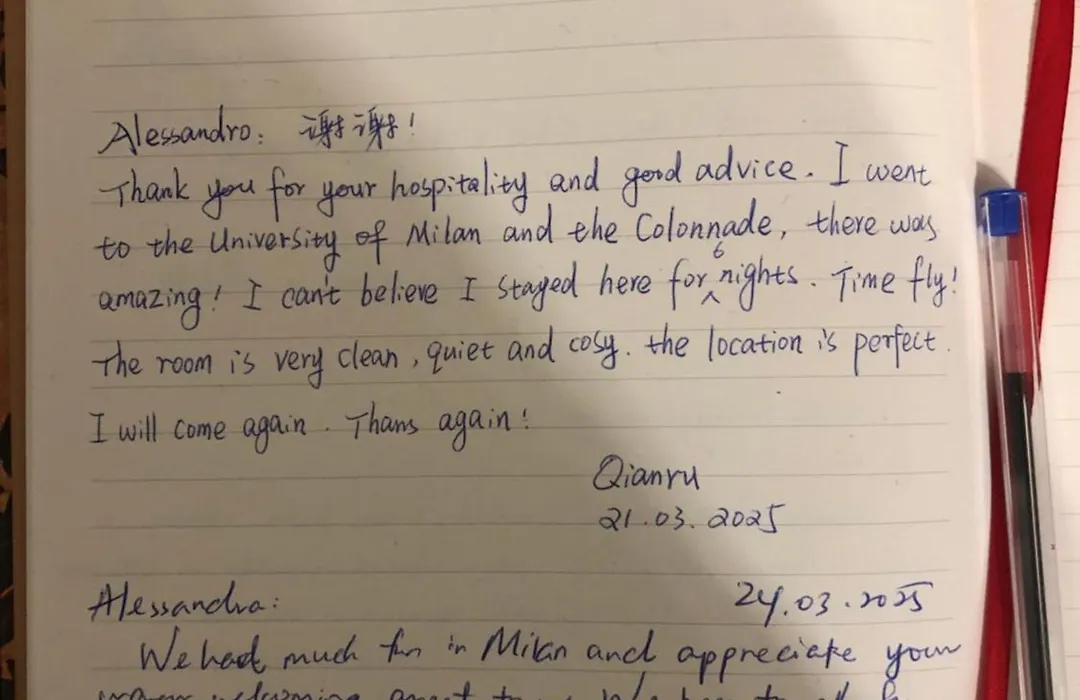 Alessandro: 谢谢!
Thank you for your hospitality and good advice. I went
to the University of Milan and the Colonnade, there was
amazing! I can't believe I stayed here for 6 nights. Time fly!
The room is very clean, quiet and cosy. the location is perfect.
I will come again. Thans again!
Qianru
21.03.2025
Alessandra: 24.03.2025
We had much fun in Milan and appreciate your